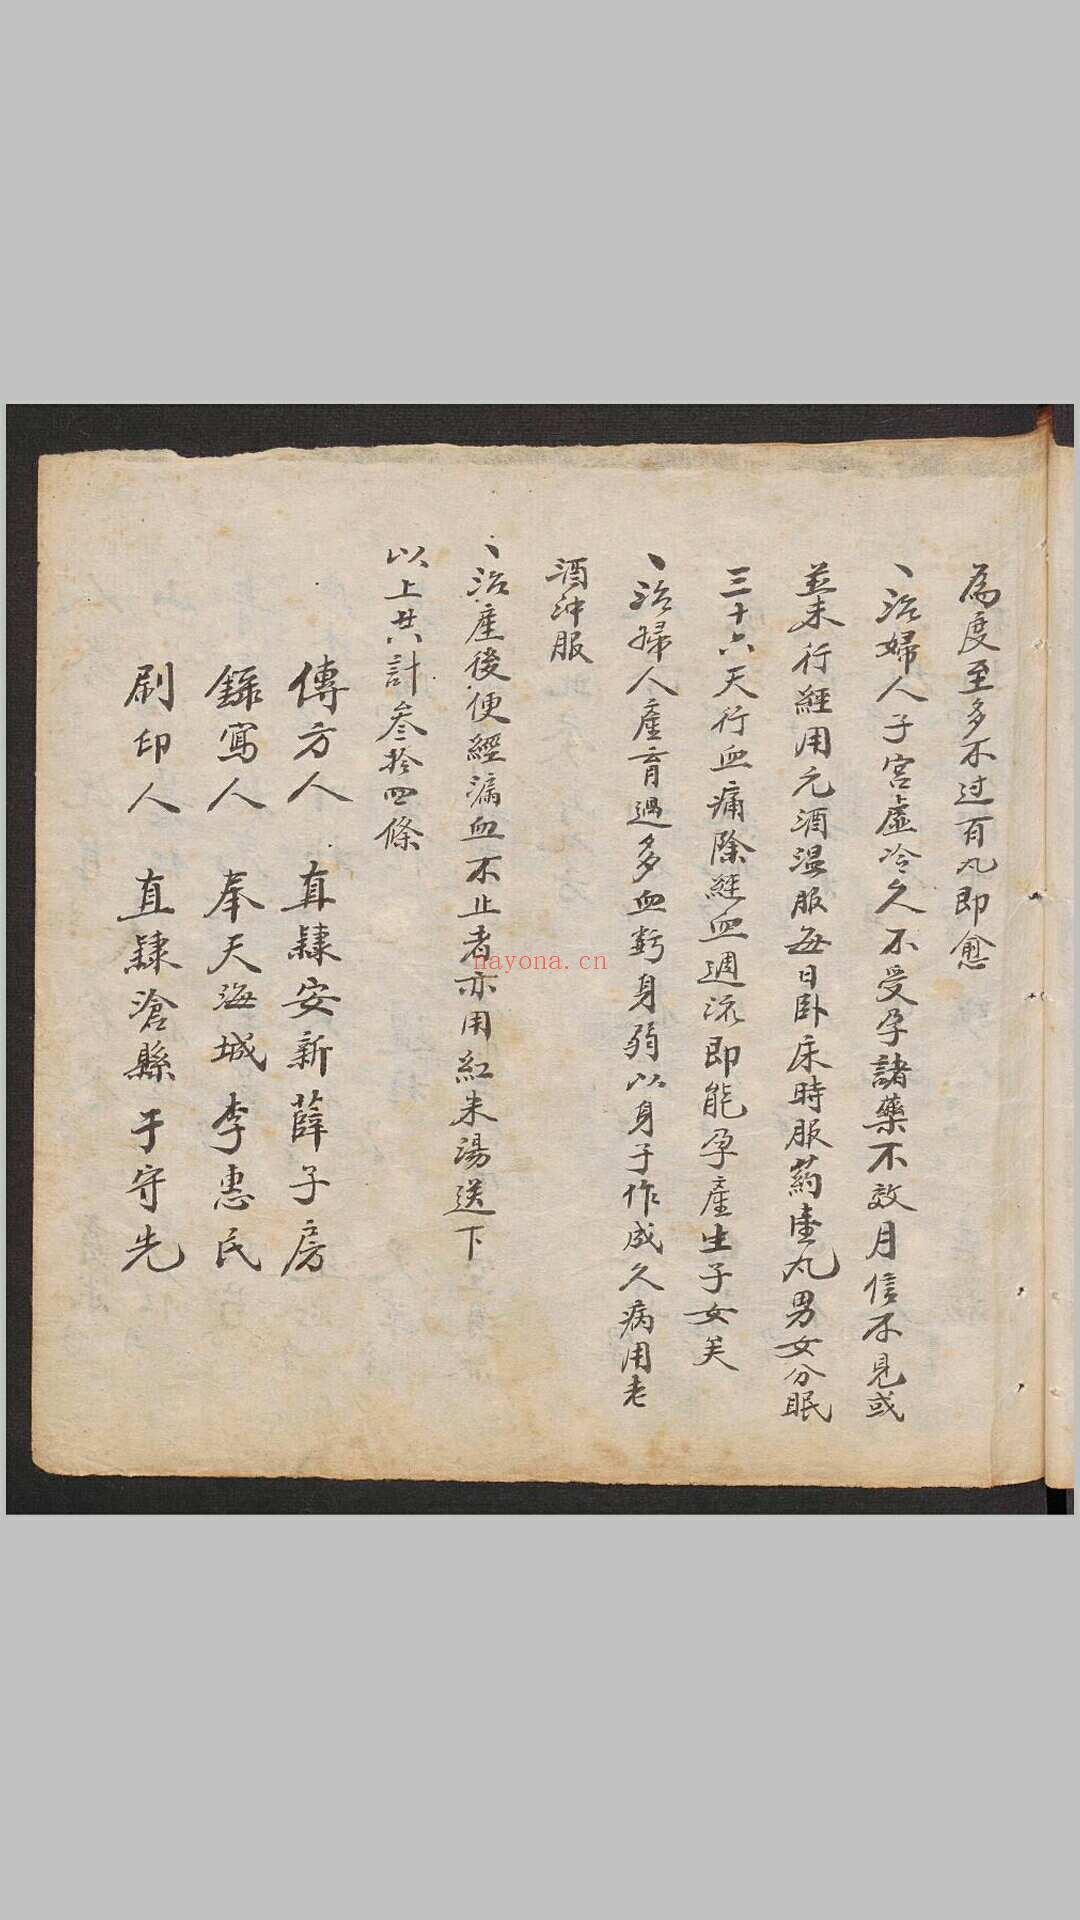 為度至多不过百丸即愈
、治婦人子宮虛冷久不受孕諸藥不效月信不見或
並未行經用元酒温服每日卧床時服药壹丸男女分眠
三十六天行血痛除經血週流即能孕產生子女矣
、治婦人產育過多血虧身弱以身子作成久病用老
酒沖服
、治產後便經漏血不止者亦用紅朱湯送下
以上共計叁拾四條
傳方人 直隸安新薛子房
錄寫人 奉天海城李惠民
刷印人 直隸滄縣于守先
nayona.cn